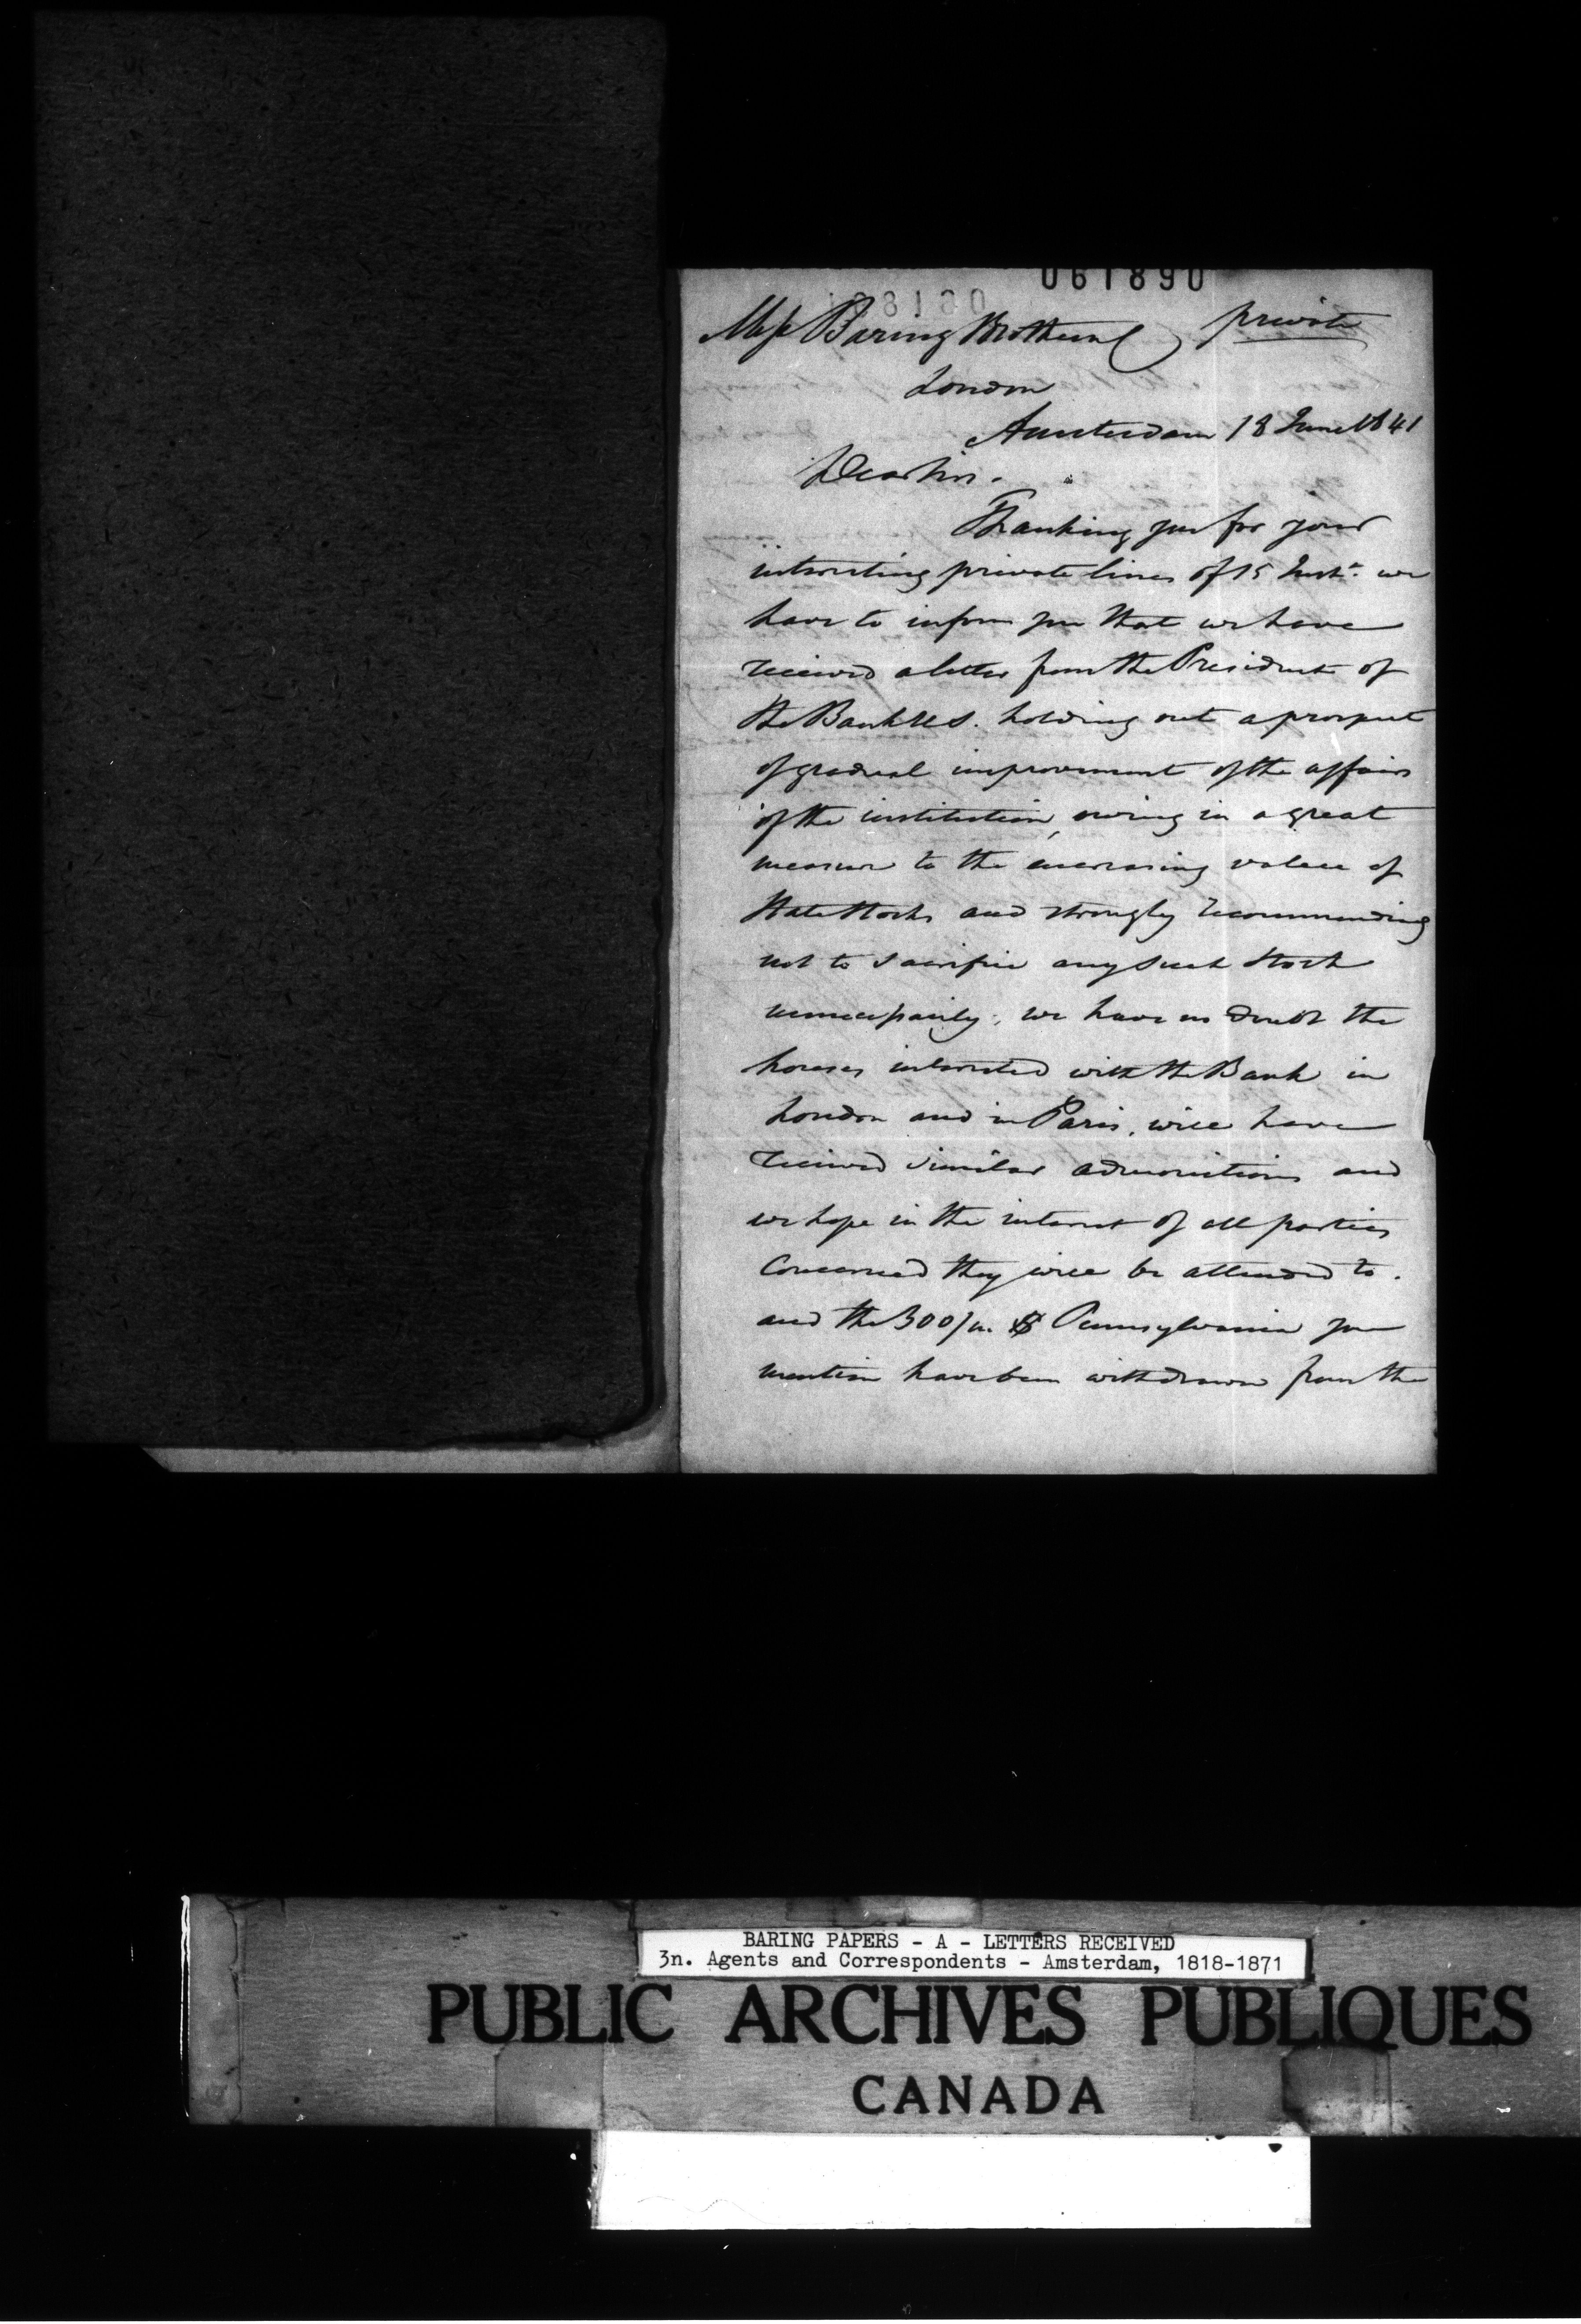 061890
Mess Baring Brothers private
London
Amsterdam 18 June 1841
Dear Sirs.
Thanking you for your
interesting private lines of 15 Inst. we
have to inform you that we have
received a letter from the President of
the Bank U S. holding out a prospect
of gradual improvement of the affairs
of the institution, owing in a great
measure to the encreasing value of
State Stocks and strongly recommending
not to sacrifice any such Stock
unnecessarily; we have no doubt the
houses interested with the Bank in
London and in Paris, will have
received similar admonitions and
we hope in the interest of all parties
Concerned they will be attended to.
and the 300/m. $ Pennsylvania you
mention have been withdrawn from the
BARING PAPERS - A - LETTERS RECEIVED
3n. Agents and Correspondents - Amsterdam, 1818-1871
PUBLIC ARCHIVES PUBLIQUES
CANADA